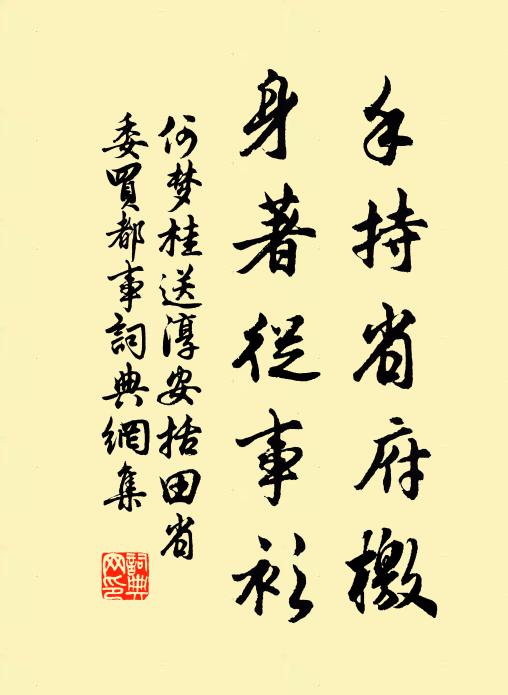 手持省府檄
身著從事衫
何梦桂送淳安括田省
委買都事詞典網集
詞典
网印